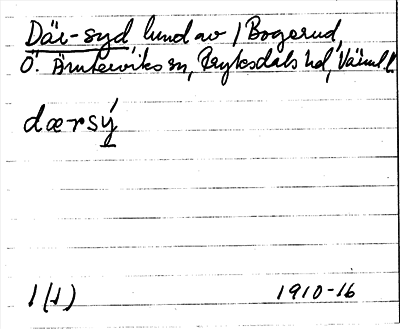 Däi-syd lund av / Bogerud,
Ö. Ämterviks sn, Fryksdals hd, Värml.
dærsý
1(1) 1910-16